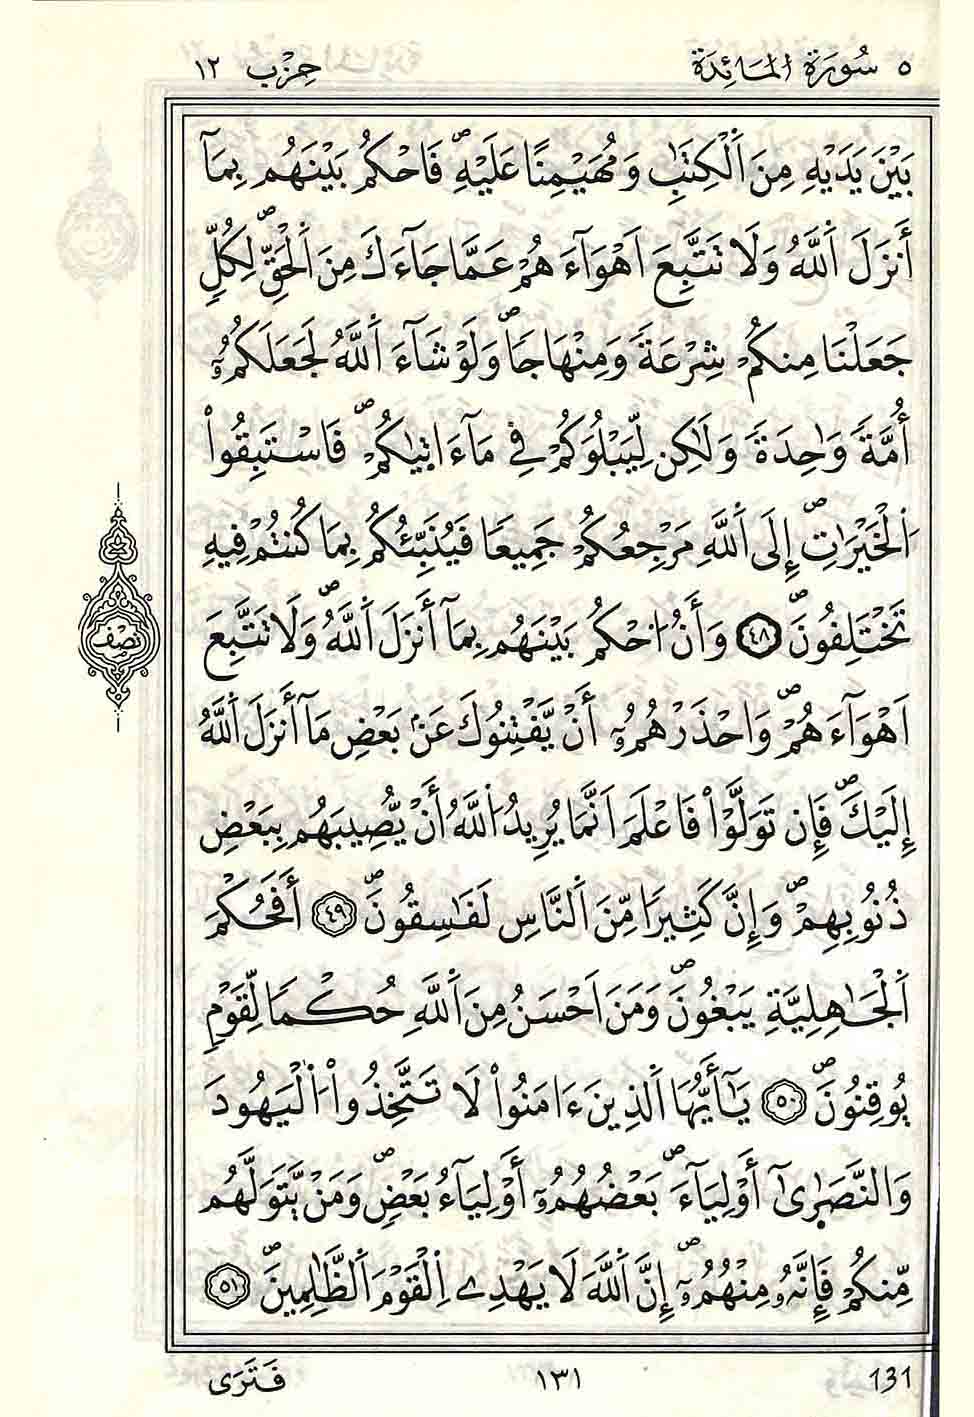 ٥ سُورَةُ الْمَائِدَة
حِزْب ١٢
بَيْنَ يَدَيْهِ مِنَ اَلْكِتَٰبِ وَمُهَيْمِنًا عَلَيْهِۖ فَاحْكُم بَيْنَهُم بِمَآ
أَنزَلَ اَللَّهُ وَلَا تَتَّبِعَ اَهْوَآءَهُمْ عَمَّا جَآءَكَ مِنَ اَلْحَقِّۖ لِكُلّٖ
جَعَلْنَا مِنكُمْ شِرْعَةٗ وَمِنْهَاجاٗۖ وَلَوْ شَآءَ اَللَّهُ لَجَعَلَكُمُۥٓ
أُمَّةٗ وَٰحِدَةٗ وَلَٰكِن لِّيَبْلُوَكُمْ فِے مَآ ءَاتٜيٰكُمْۖ فَاسْتَبِقُواْ
اُلْخَيْرَٰتِۖ إِلَى اَللَّهِ مَرْجِعُكُمْ جَمِيعاٗ فَيُنَبِّئُكُم بِمَا كُنتُمْ فِيهِ
تَخْتَلِفُونَۖ ٤٨ وَأَنُ اُحْكُم بَيْنَهُم بِمَآ أَنزَلَ اَللَّهُۖ وَلَا تَتَّبِعَ
اَهْوَآءَهُمْۖ وَاحْذَرْهُمُۥٓ أَنْ يَّفْتِنُوكَ عَنۢ بَعْضِ مَآ أَنزَلَ اَللَّهُ
إِلَيْكَۖ فَإِن تَوَلَّوْاْ فَاعْلَمَ اَنَّمَا يُرِيدُ اُللَّهُ أَنْ يُّصِيبَهُم بِبَعْضِ
ذُنُوبِهِمْۖ وَإِنَّ كَثِيراٗ مِّنَ اَلنَّاسِ لَفَٰسِقُونَۖ ٤٩ أَفَحُكْمَ
اَلْجَٰهِلِيَّةِ يَبْغُونَۖ وَمَنَ اَحْسَنُ مِنَ اَللَّهِ حُكْماٗ لِّقَوْمٖ
يُوقِنُونَۖ ٥٠ يَٰٓأَيُّهَا اَلذِينَ ءَامَنُواْ لَا تَتَّخِذُواْ اُلْيَهُودَ
وَالنَّصَٰرٜىٰٓ أَوْلِيَآءَۖ بَعْضُهُمُۥٓ أَوْلِيَآءُ بَعْضٖۖ وَمَنْ يَّتَوَلَّهُم
مِّنكُمْ فَإِنَّهُۥ مِنْهُمُۥٓۖ إِنَّ اَللَّهَ لَا يَهْدِے اِلْقَوْمَ اَلظَّٰلِمِينَۖ ٥١
نصف
فَتَرَى
١٣١
131